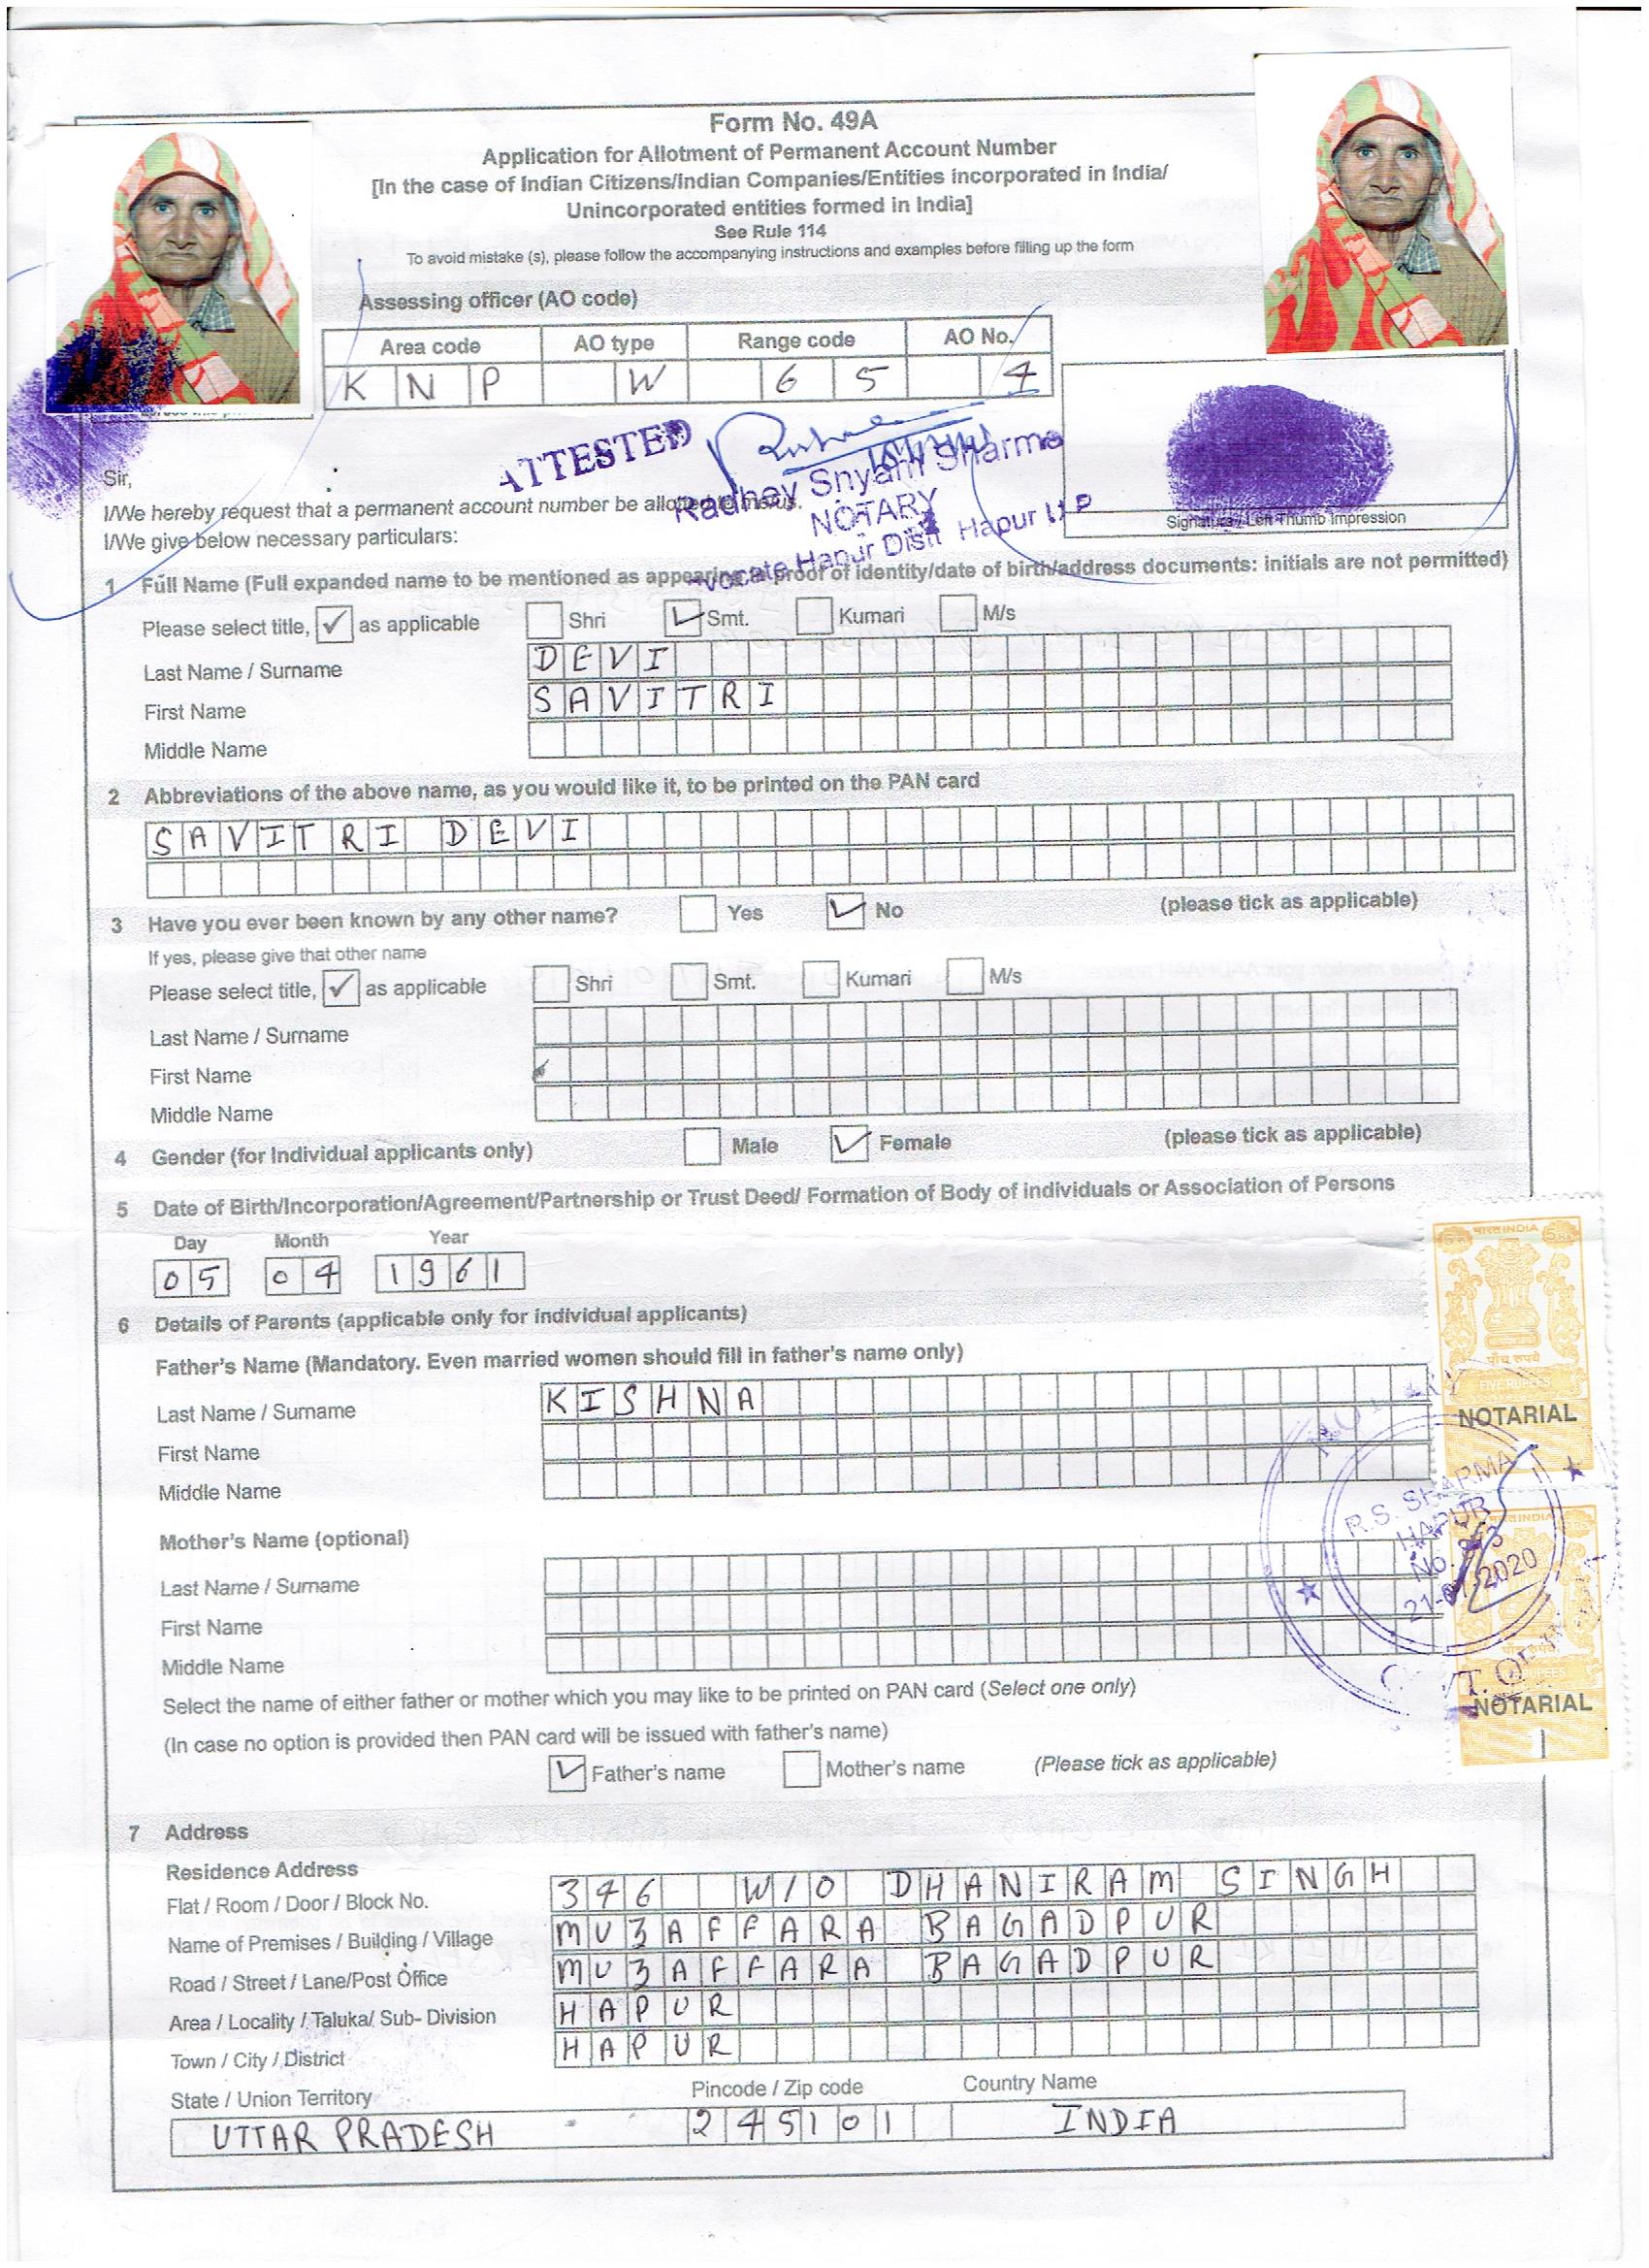 Form No. 49A
Application for Allotment of Permanent Account Number
[In the case of Indian Citizens/Indian Companies/Entities incorporated in India/
Unincorporated entities formed in India]
See Rule 114
To avoid mistake (s), please follow the accompanying instructions and examples before filling up the form
Assessing officer (AO code)
Area code AO type Range code AO No.
KNP W 65 4
ATTESTED
Radhey Shyam Sharma
NOTARY
Hapur Distt Hapur U P
Signature / Left Thumb Impression
Sir,
I/We hereby request that a permanent account number be allotted to me/us.
I/We give below necessary particulars:
1 Full Name (Full expanded name to be mentioned as appearing in proof of identity/date of birth/address documents: initials are not permitted)
Please select title, ✓ as applicable Shri Smt. Kumari M/s
Last Name / Surname DEVI
First Name SAVITRI
Middle Name
2 Abbreviations of the above name, as you would like it, to be printed on the PAN card
SAVITRI DEVI
3 Have you ever been known by any other name? Yes No (please tick as applicable)
If yes, please give that other name
Please select title, ✓ as applicable Shri Smt. Kumari M/s
Last Name / Surname
First Name
Middle Name
4 Gender (for Individual applicants only) Male Female (please tick as applicable)
5 Date of Birth/Incorporation/Agreement/Partnership or Trust Deed/ Formation of Body of individuals or Association of Persons
Day Month Year
05 04 1961
6 Details of Parents (applicable only for individual applicants)
Father's Name (Mandatory. Even married women should fill in father's name only)
Last Name / Surname KISHNA
First Name
Middle Name
Mother's Name (optional)
Last Name / Surname
First Name
Middle Name
भारत INDIA
पाँच रुपये
FIVE RUPEES
NOTARIAL
R.S. SHARMA
HAPUR
NOTARIAL
Select the name of either father or mother which you may like to be printed on PAN card (Select one only)
(In case no option is provided then PAN card will be issued with father's name)
Father's name Mother's name (Please tick as applicable)
7 Address
Residence Address
Flat / Room / Door / Block No. 346 W/O DHANIRAM SINGH
Name of Premises / Building / Village MUZAFFARA BAGADPUR
Road / Street / Lane/Post Office MUZAFFARA BAGADPUR
Area / Locality / Taluka/ Sub- Division HAPUR
Town / City / District HAPUR
State / Union Territory Pincode / Zip code Country Name
UTTAR PRADESH 245101 INDIA